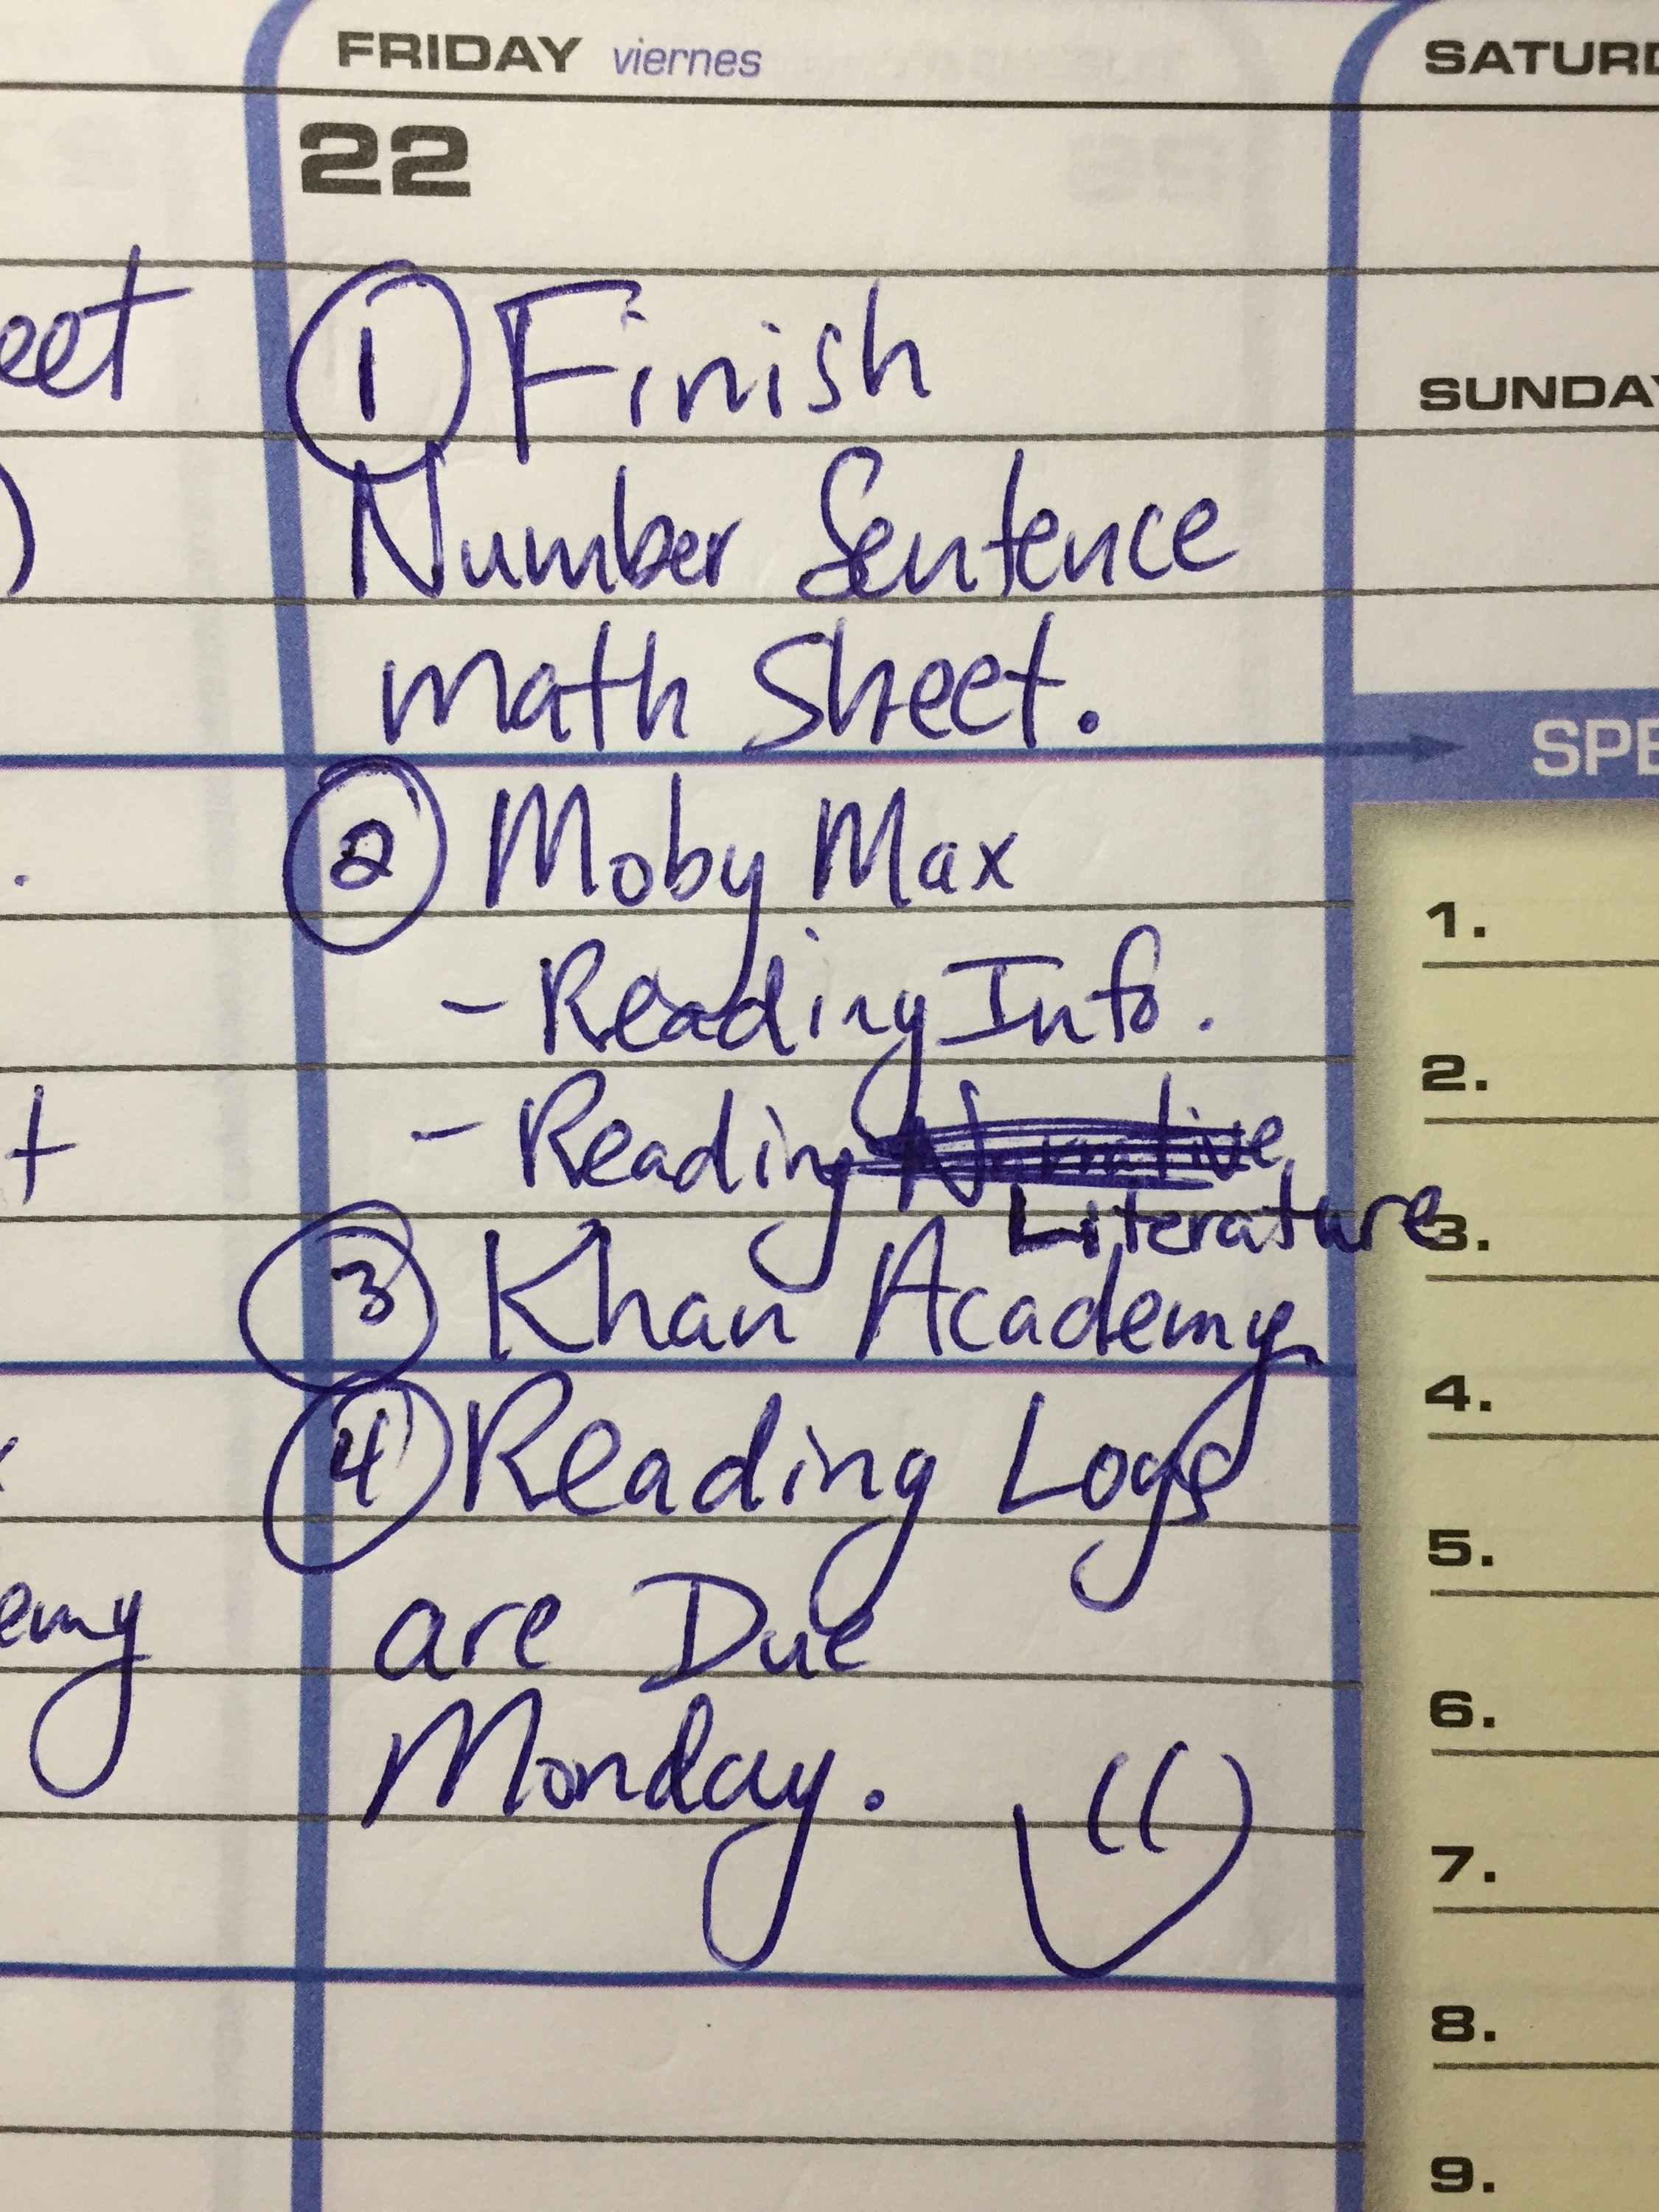 FRIDAY viernes
22
① Finish
Number Sentence
math Sheet.
② Moby Max
- Reading Info.
- Reading Narrative
Literature
③ Khan Academy.
④ Reading Logs
are Due
Monday.
eet
)
.
t
emy
SATURD
SUNDAY
SPE
1.
2.
3.
4.
5.
6.
7.
8.
9.